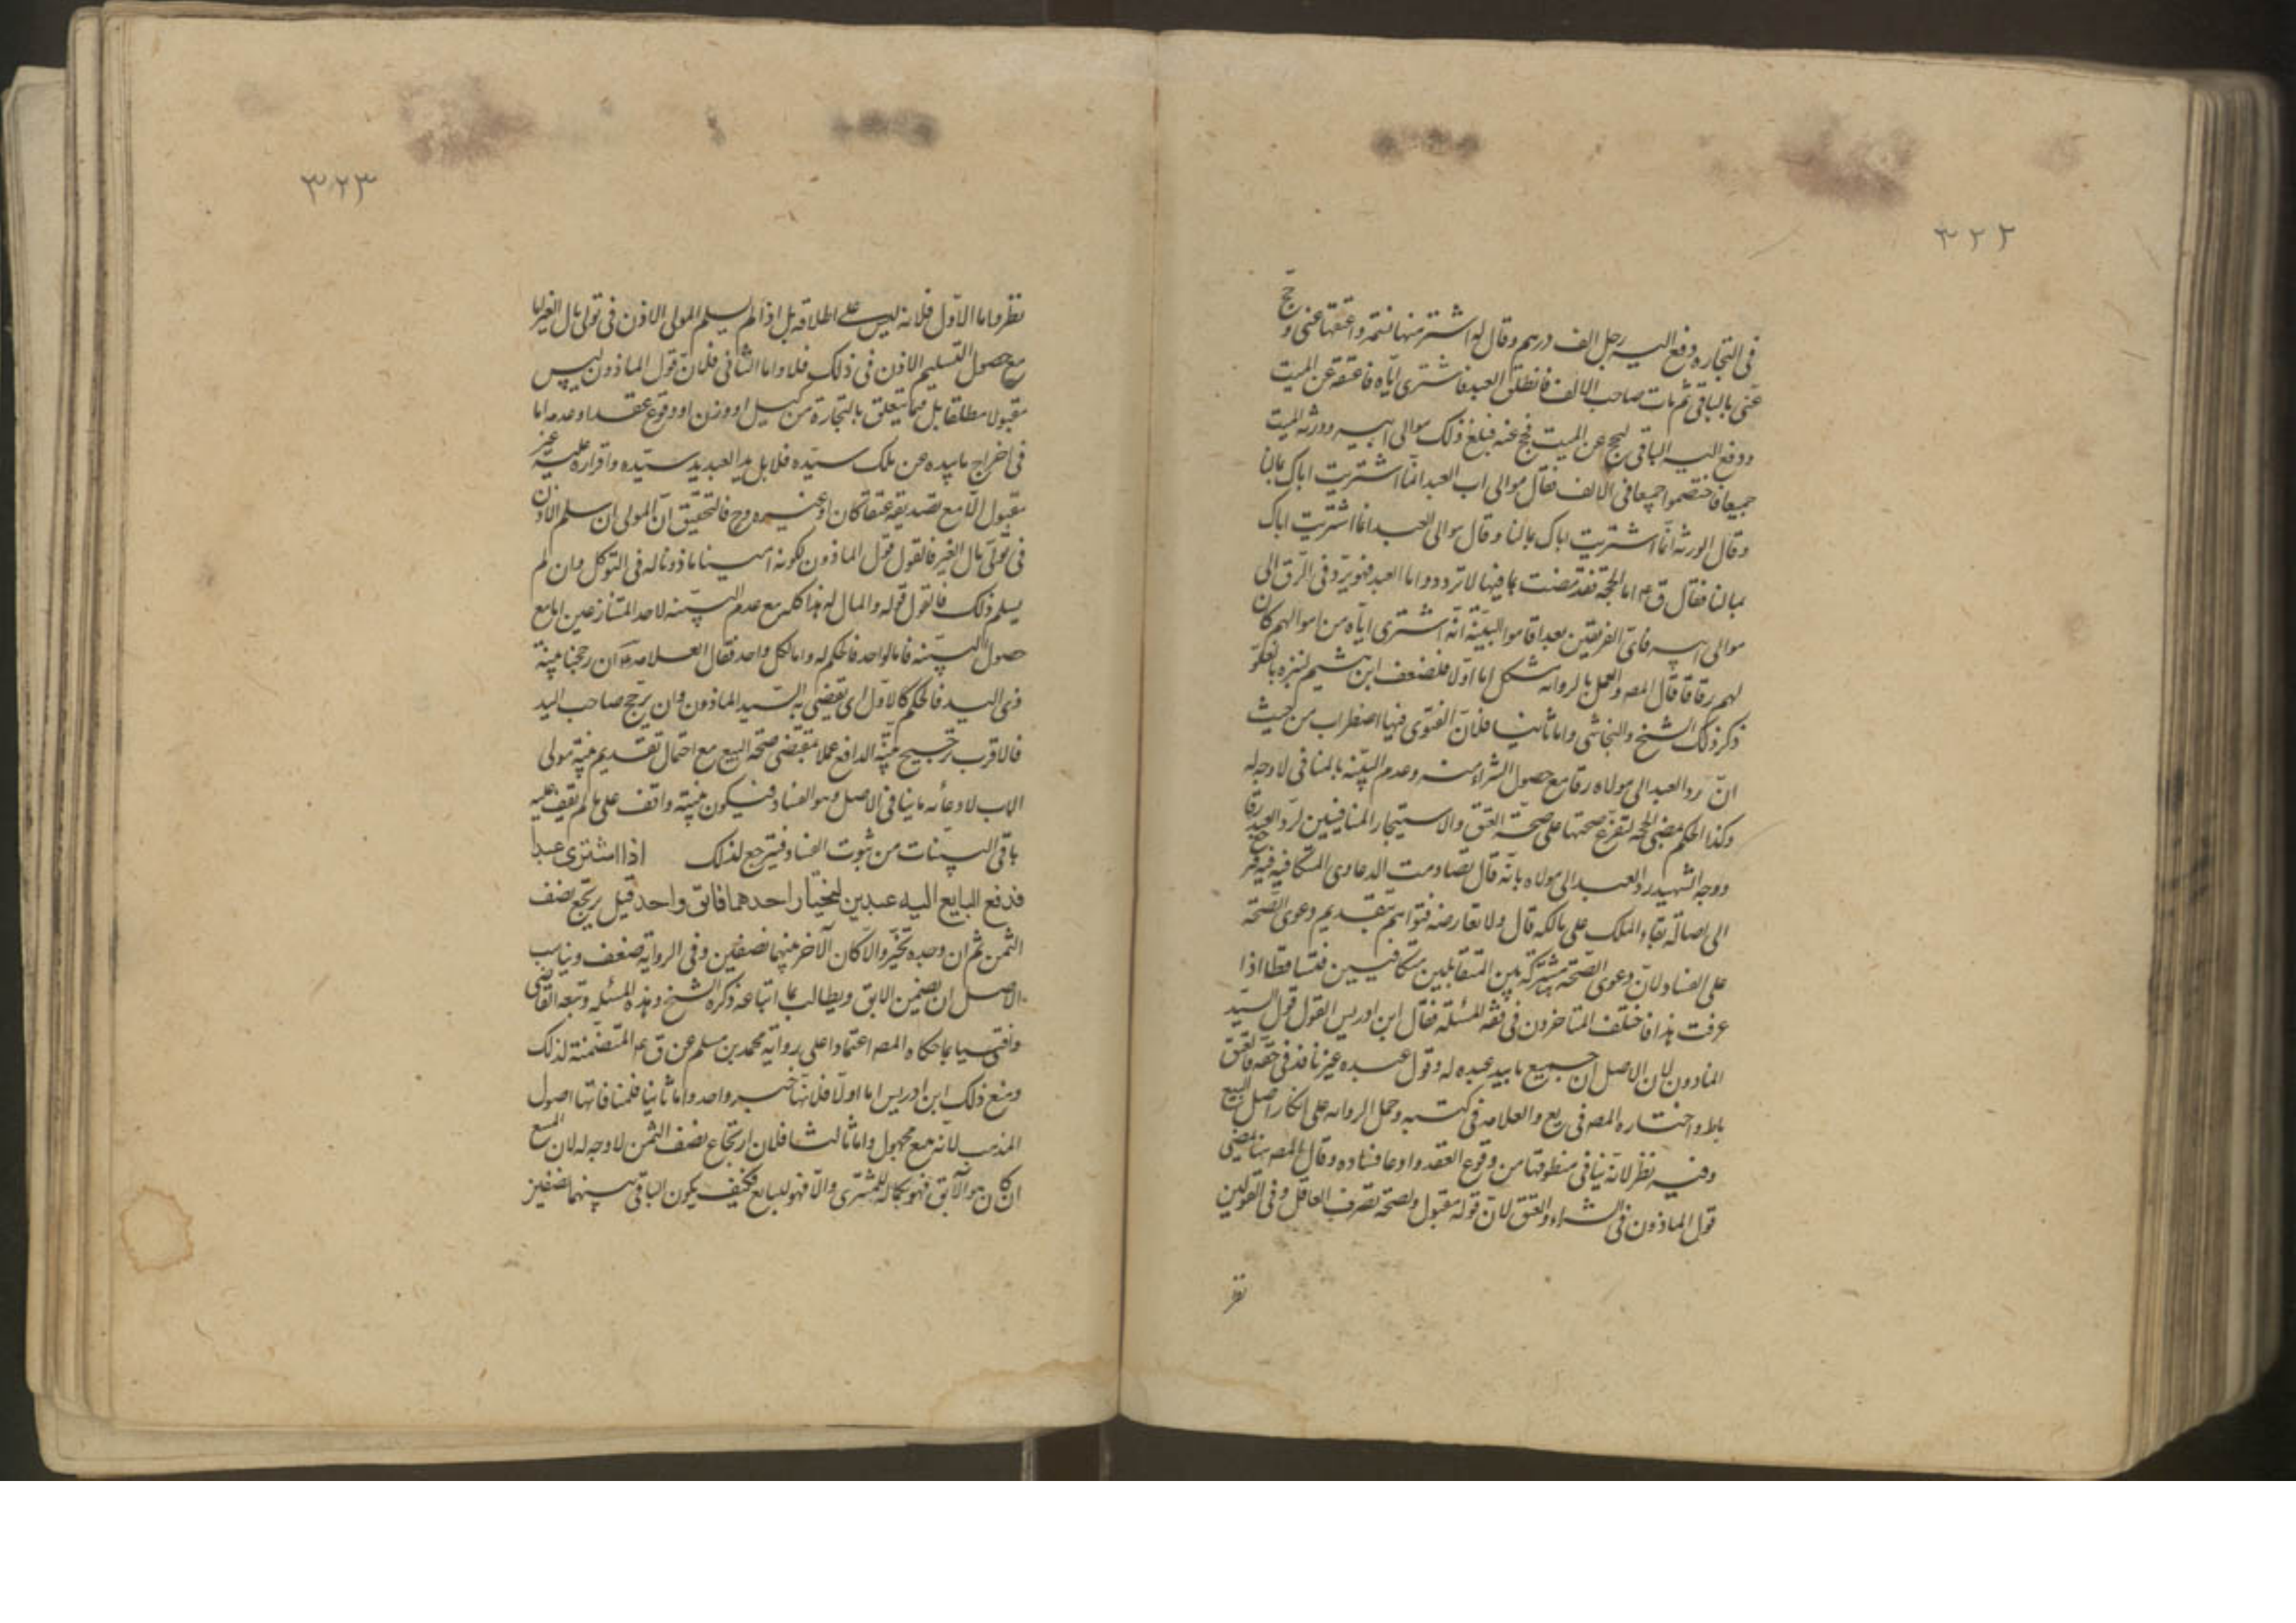 ٣٢٢
فى التجاره دفع اليه رجل الف درهم وقال له اشتر منها نسمة واعتقها عنى وحج
عنى بالباقى ثم مات صاحب الالف فانطلق العبد فاشترى اباه فاعتقه عن الميت
ودفع اليه الباقى ليحج عن الميت فحج عنه فبلغ ذلك موالى ابيه وورثة الميت
جميعا فاختصموا جميعا فى الالف فقال موالى اب العبد انما اشتريت اباك بمالنا
وقال الورثه انما اشتريت اباك بمالنا وقال موالى العبد انما اشتريت اباك
بمالنا فقال ق ع اما الحجة فقد مضت بما فيها لا ترد واما العبد فهو يرد فى الرق الى
موالى ابيه فاى الفريقين بعد اقاموا البينة انه اشترى اباه من اموالهم كان
لهم رقا قال المص والعمل بالروايه مشكل اما اولا فلضعف ابن هشيم لنبزه بالغلو
ذكر ذلك الشيخ والنجاشى واما ثانيا فلان الفتوى فيها اضطراب من حيث
ان رد العبد الى مولاه رقا مع حصول الشراء منه وعدم البينه بالمنافى لا وجه له
وكذا الحكم بمضى الحجة لتفرع صحتها على صحة العتق والاستيجار المنافيين لرد العبد رقا
ووجه الشهيد رد العبد الى مولاه بانه قال تصادمت الدعاوى المتكافيه فيرجع
الى اصالة بقاء الملك على مالكه قال ولا تعارضه فتواهم بتقديم دعوى الصحة
على الفساد لان دعوى الصحة مشتركة بين المتقابلين متكافيين فتساقطا اذا
عرفت هذا فاختلف المتاخرون فى فقه المسئلة فقال ابن ادريس القول قول السيد
الماذون لان الاصل ان جميع ما بيد عبده له وقول عبده غير نافذ فى حقه فالعتق
باط واختاره المص فى يع والعلامه فى كتبه وحمل الروايه على انكار اصل البيع
وفيه نظر لانه ينافى منطوقها من وقوع العقد وادعا فساده وقال المص هنا بمضى
قول الماذون فى الشراء والعتق لان قوله مقبول ولصحة تصرف العاقل وفى القولين
نظر
٣٢٣
نظر واما الاول فلانه ليس على اطلاقه بل اذا لم يسلم المولى الاذن فى تولى مال الغير اما
مع حصول التسليم الاذن فى ذلك فلا واما الثانى فلان قول الماذون ليس
مقبولا مطلقا بل فيما يتعلق بالتجارة من كيل او وزن او وقوع عقد او عدمه اما
فى اخراج ما بيده عن ملك سيده فلا بل يد العبد يد سيده واقراره عليه غير
مقبول الا مع تصديقه عتقا كان او غيره وح فالتحقيق ان المولى ان سلم الاذن
فى تولى مال الغير فالقول قول الماذون لكونه امينا ماذونا له فى التوكل وان لم
يسلم ذلك فالقول قوله والمال له هذا كله مع عدم البينه لاحد المتنازعين اما مع
حصول البينه فاما لواحد فالحكم له واما لكل واحد فقال العلامه ان رجحنا بينة
ذى اليد فالحكم كالاول اى يقضى به لسيد الماذون وان يرجح صاحب اليد
فالاقرب ترجيح بينة الدافع عملا بمقتضى صحة البيع مع احتمال تقديم بينة مولى
الاب لادعائه ما ينافى الاصل وهو الفساد فيكون بينته واقف على ما لم يقف عليه
باقى البينات من ثبوت الفساد فترجع لذلك اذا اشترى عبدا
فدفع البايع اليه عبدين ليختار احدهما فابق واحد قيل يرتجع نصف
الثمن ثم ان وجده تخير والا كان الآخر بينهما نصفين وفى الرواية ضعف ويناسب
الاصل ان يضمن الابق ويطالب بما ابتاعه ذكره الشيخ هذه المسئلة وتبعه القاضى
وافتيا بما حكاه المص اعتمادا على رواية محمد بن مسلم عن ق ع المتضمنة لذلك
ومنع ذلك ابن ادريس اما اولا فلانها خبر واحد واما ثانيا فلمنافاتها اصول
المذهب لانه بيع مجهول واما ثالثا فلان ارتجاع نصف الثمن لا وجه له لان المبيع
ان كان هو الآبق فهو بكماله للمشترى والا فهو للبايع فكيف يكون الباقى بينهما نصفين